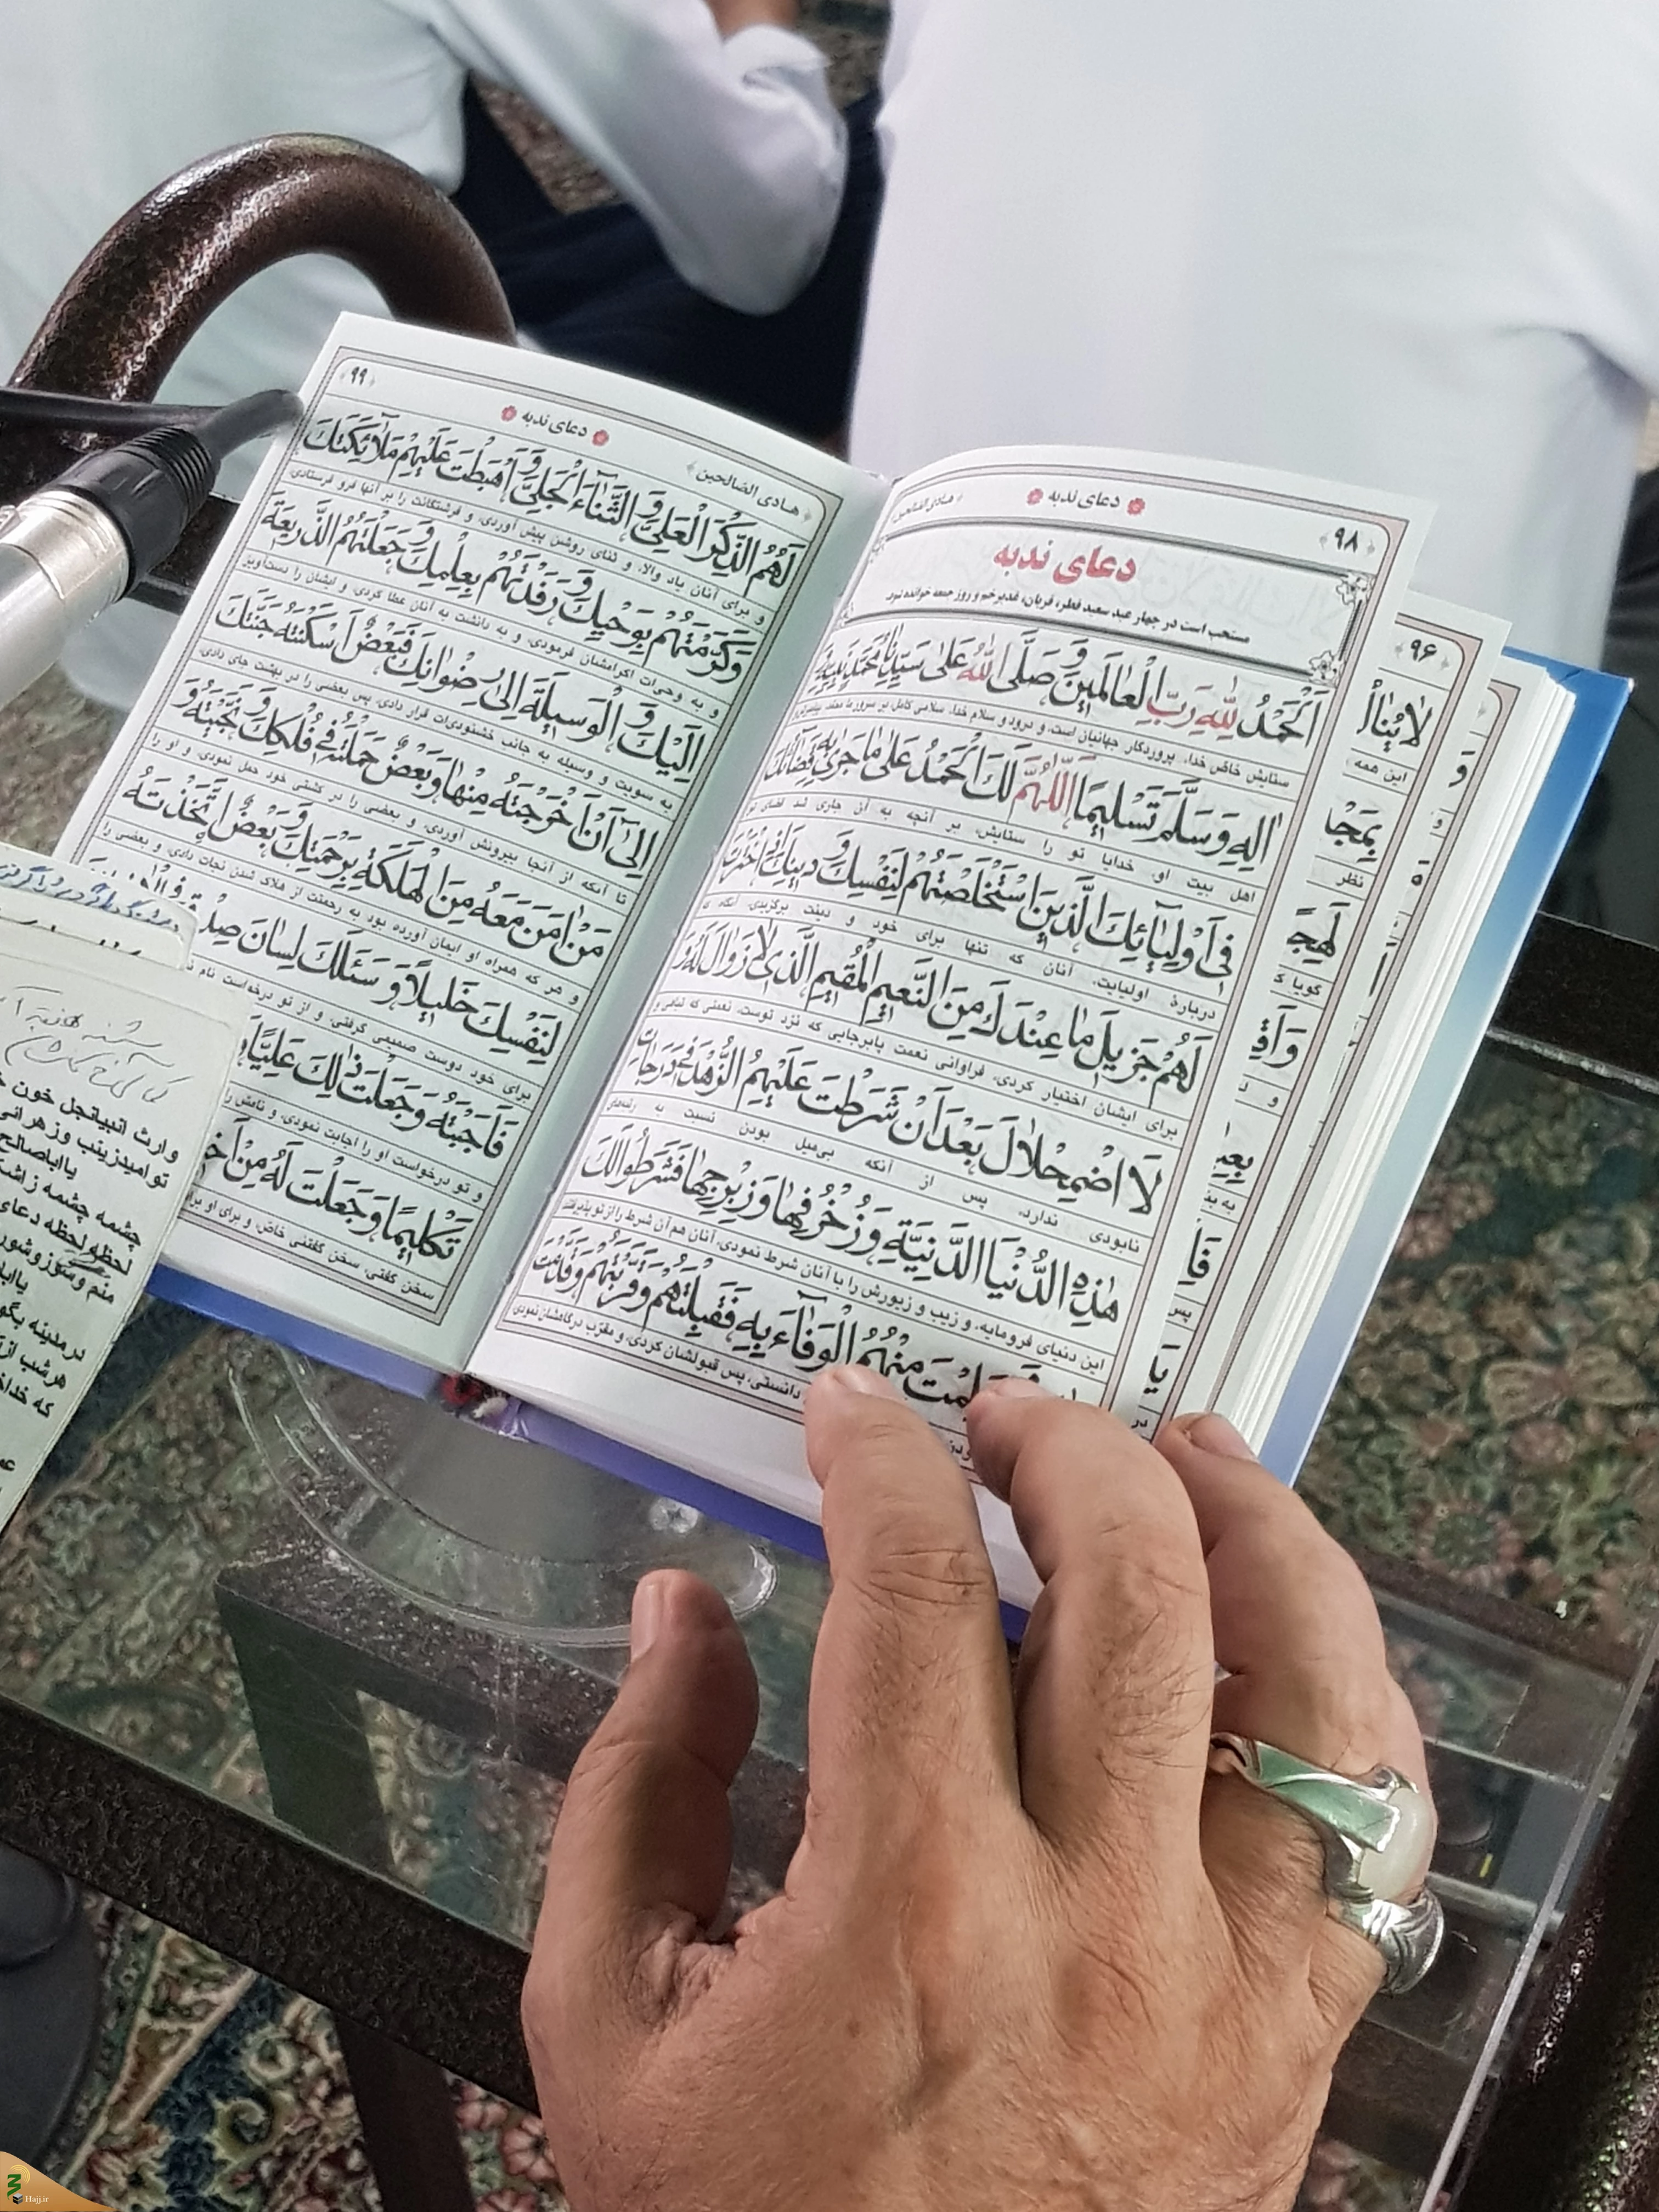 ﴿۹۸﴾
دعای ندبه
هادی الصالحین
دعای ندبه
مستحب است در چهار عید سعید فطر، قربان، غدیر خم و روز جمعه خوانده شود.
اَلْحَمْدُ لِلّٰهِ رَبِّ الْعٰالَمينَ وَ صَلَّى اللّٰهُ عَلىٰ سَيِّدِنٰا مُحَمَّدٍ نَبِيِّهِ
ستایش خاصّ خدا، پروردگار جهانیان است، و درود و سلام خدا، سلامی کامل بر سرور ما محمّد، پیامبرش و
اٰلِهِ وَ سَلَّمَ تَسْليمًا اَللّٰهُمَّ لَكَ الْحَمْدُ عَلىٰ مٰا جَرىٰ بِهِ قَضٰائُكَ
اهل بیت او. خدایا تو را ستایش، بر آنچه به آن جاری شد قضای تو
فى اَوْلِيٰائِكَ الَّذينَ اسْتَخْلَصْتَهُمْ لِنَفْسِكَ وَ دينِكَ اِذِ اخْتَرْتَ
دربارهٔ اولیایت، آنان که تنها برای خود و دینت برگزیدی، آنگاه که
لَهُمْ جَزيلَ مٰا عِنْدَكَ مِنَ النَّعيمِ الْمُقيمِ الَّذى لاٰ زَوٰالَ لَهُ وَ
برای ایشان اختیار کردی، فراوانی نعمت پابرجایی که نزد توست، نعمتی که تباهی و
لَا اضْمِحْلاٰلَ بَعْدَ اَنْ شَرَطْتَ عَلَيْهِمُ الزُّهْدَ فى دَرَجٰاتِ
نابودی ندارد، پس از آنکه بی‌میل بودن نسبت به رتبه‌های
هٰذِهِ الدُّنْيَا الدَّنِيَّةِ وَ زُخْرُفِهٰا وَ زِبْرِجِهٰا فَشَرَطُوا لَكَ
این دنیای فرومایه، و زیب و زیورش را با آنان شرط نمودی، آنان هم آن شرط را از تو پذیرفتند
مِنْهُمُ الْوَفٰاءَ بِهِ فَقَبِلْتَهُمْ وَ قَرَّبْتَهُمْ وَ قَدَّمْتَ
دانستی، پس قبولشان کردی، و مقرّب درگاهشان نمودی
﴿۹۹﴾
دعای ندبه
هادی الصالحین
لَهُمُ الذِّكْرَ الْعَلِىَّ وَ الثَّنٰاءَ الْجَلِىَّ وَ اَهْبَطْتَ عَلَيْهِمْ مَلاٰئِكَتَكَ
و برای آنان یاد والا، و ثنای روشن پیش آوردی، و فرشتگانت را بر آنها فرو فرستادی،
وَ كَرَّمْتَهُمْ بِوَحْيِكَ وَ رَفَدْتَهُمْ بِعِلْمِكَ وَ جَعَلْتَهُمُ الذَّريعَةَ
و به وحی‌ات اکرامشان فرمودی، و به دانشت به آنان عطا کردی و ایشان را دست‌آویز
اِلَيْكَ وَ الْوَسيلَةَ اِلىٰ رِضْوٰانِكَ فَبَعْضٌ اَسْكَنْتَهُ جَنَّتَكَ
به سویت و وسیله به جانب خشنودی‌ات قرار دادی، پس بعضی را در بهشت جای دادی،
اِلىٰ اَنْ اَخْرَجْتَهُ مِنْهٰا وَ بَعْضٌ حَمَلْتَهُ فى فُلْكِكَ وَ نَجَّيْتَهُ وَ
تا آنکه از آنجا بیرونش آوردی، و بعضی را در کشتی خود حمل نمودی، و او را
مَنْ اٰمَنَ مَعَهُ مِنَ الْهَلَكَةِ بِرَحْمَتِكَ وَ بَعْضٌ اتَّخَذْتَهُ
و هر که همراه او ایمان آورده بود به رحمتت از هلاک شدن نجات دادی، و بعضی را
لِنَفْسِكَ خَليلاً وَ سَئَلَكَ لِسٰانَ صِدْ
برای خود دوست صمیمی گرفتی، و از تو درخواست نام
فَاَجَبْتَهُ وَ جَعَلْتَ ذٰلِكَ عَلِيًّا
و تو درخواست او را اجابت نمودی، و نامش را
تَكْليمًا وَ جَعَلْتَ لَهُ مِنْ اَخ
سخن گفتی، سخن گفتنی خاص، و برای او برا
﴿۹۶﴾
این همه
نظر
گویا ک
پس
وارث انبیانجل خون
تو امید زینب و زهرائی
یااباصالح
چشمه چشمه ز اشک
لحظه لحظه دعای
منم و سوز و شور
یااباا
در مدینه بگو
هر شب از
که خدا
Hajj.ir